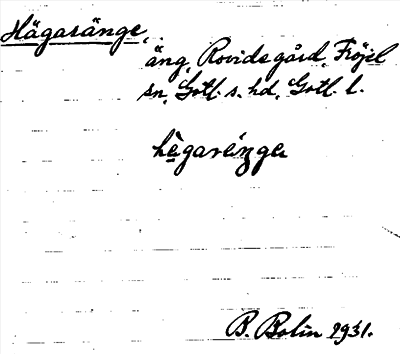 Hägaränge,
äng, Rovidsgård, Fröjel
sn, Gotl. s. hd, Gotl. l.
hègaréngɐ
B. Bolin 1931.